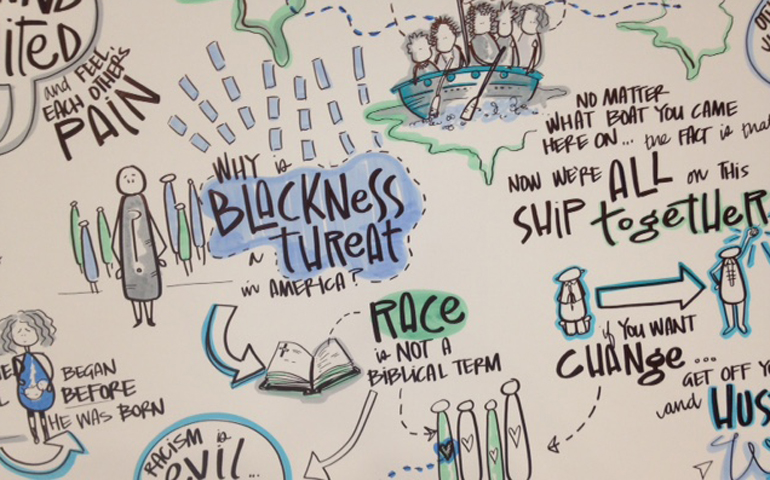 ited
and FEEL
EACH OTHER'S
PAIN
NO MATTER
WHAT BOAT YOU CAME
HERE ON... the FACT is that
NOW WE'RE ALL on THIS
SHIP together
WHY is
BLACKNESS
a THREAT
in AMERICA?
RACE
is NOT A
BIBLICAL TERM
if YOU WANT
CHANGE...
GET OFF
and HUS
BEGAN
BEFORE
HE WAS BORN
RACISM is
EVIL...